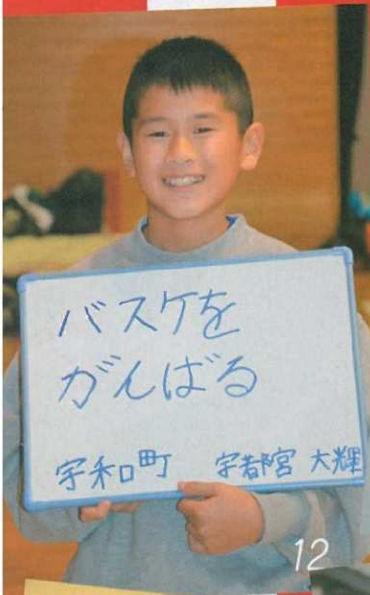 バスケを
がんばる
宇和町 宇都宮 大輝
12